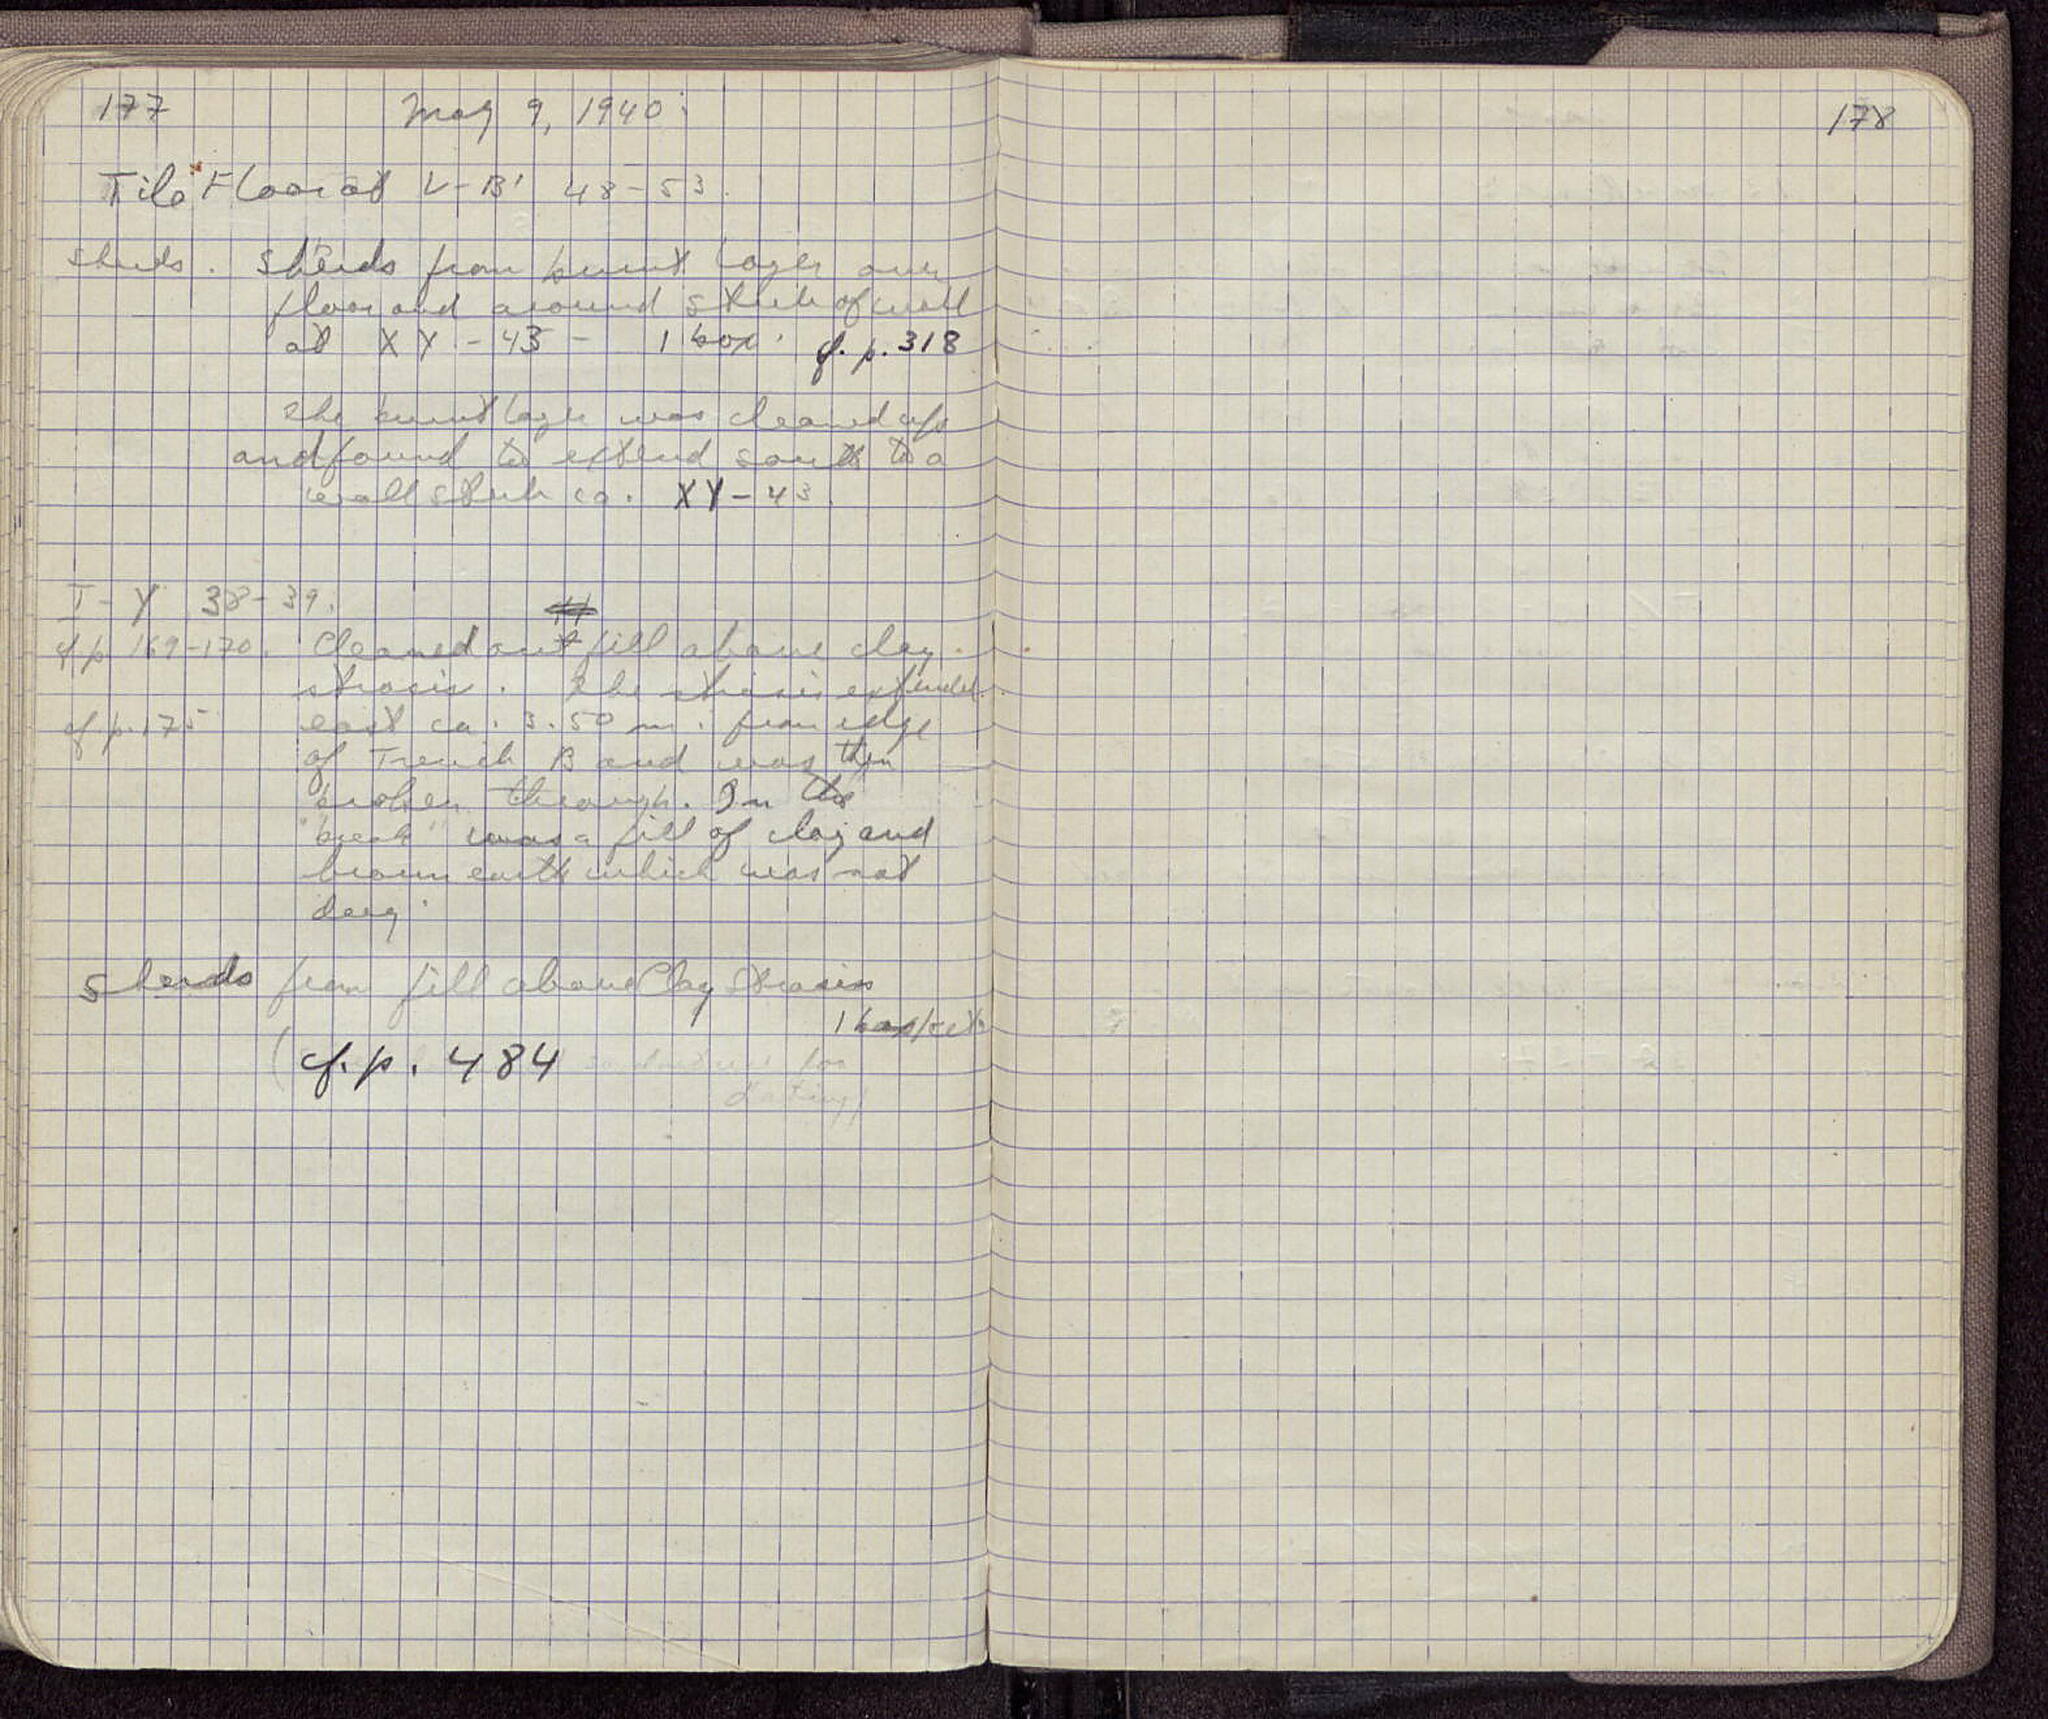 177 May 9, 1940.
Tile Floor at V-B' 48-53.
sherds. Sherds from burnt layer over
floor and around stub of wall
at XY-43 - 1 box. cf. p. 318
The burnt layer was cleaned up
and found to extend south to a
wall stub ca. XY-43.
I-Y 38-39.
cf p 169-170. Cleaned out fill above clay
strosis. The strosis extended
cf p. 175 east ca. 3.50 m. from edge
of Trench B and was then
broken through. In the
"break" was a fill of clay and
brown earth which was not
dug.
Sherds from fill above Clay Strosis
1 basket
(cf. p. 484 for
dating)
178